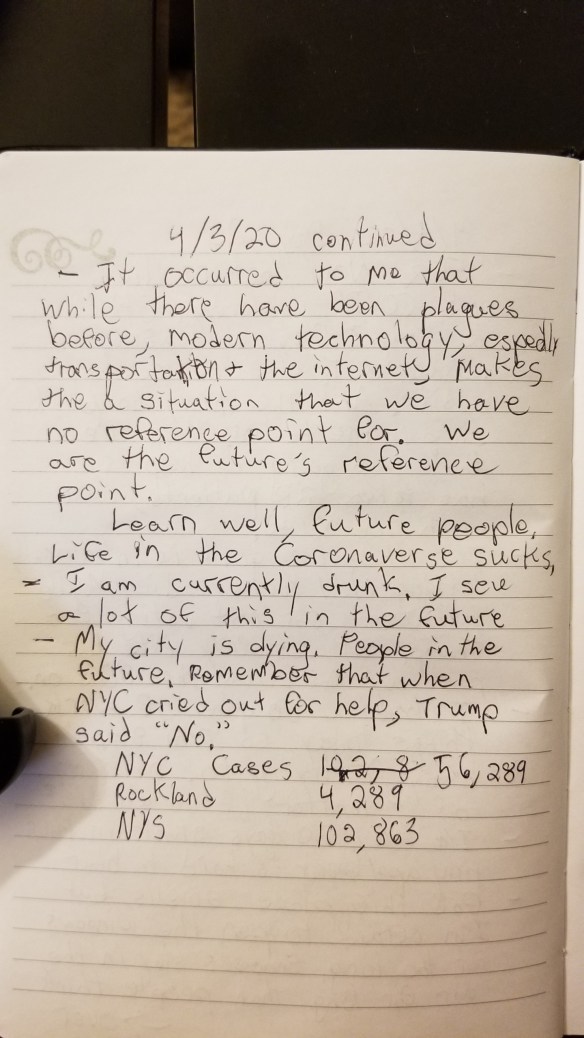 4/3/20 continued
- It occurred to me that
while there have been plagues
before, modern technology, espedly
transportation + the internet, makes
the a situation that we have
no reference point for. We
are the future's reference
point.
Learn well, future people,
Life in the Coronaverse sucks,
- I am currently drunk, I see
a lot of this in the future
- My city is dying. People in the
future, Remember that when
NYC cried out for help, Trump
said "No."
NYC Cases 102,8 56,289
Rockland 4,289
NYS 102,863